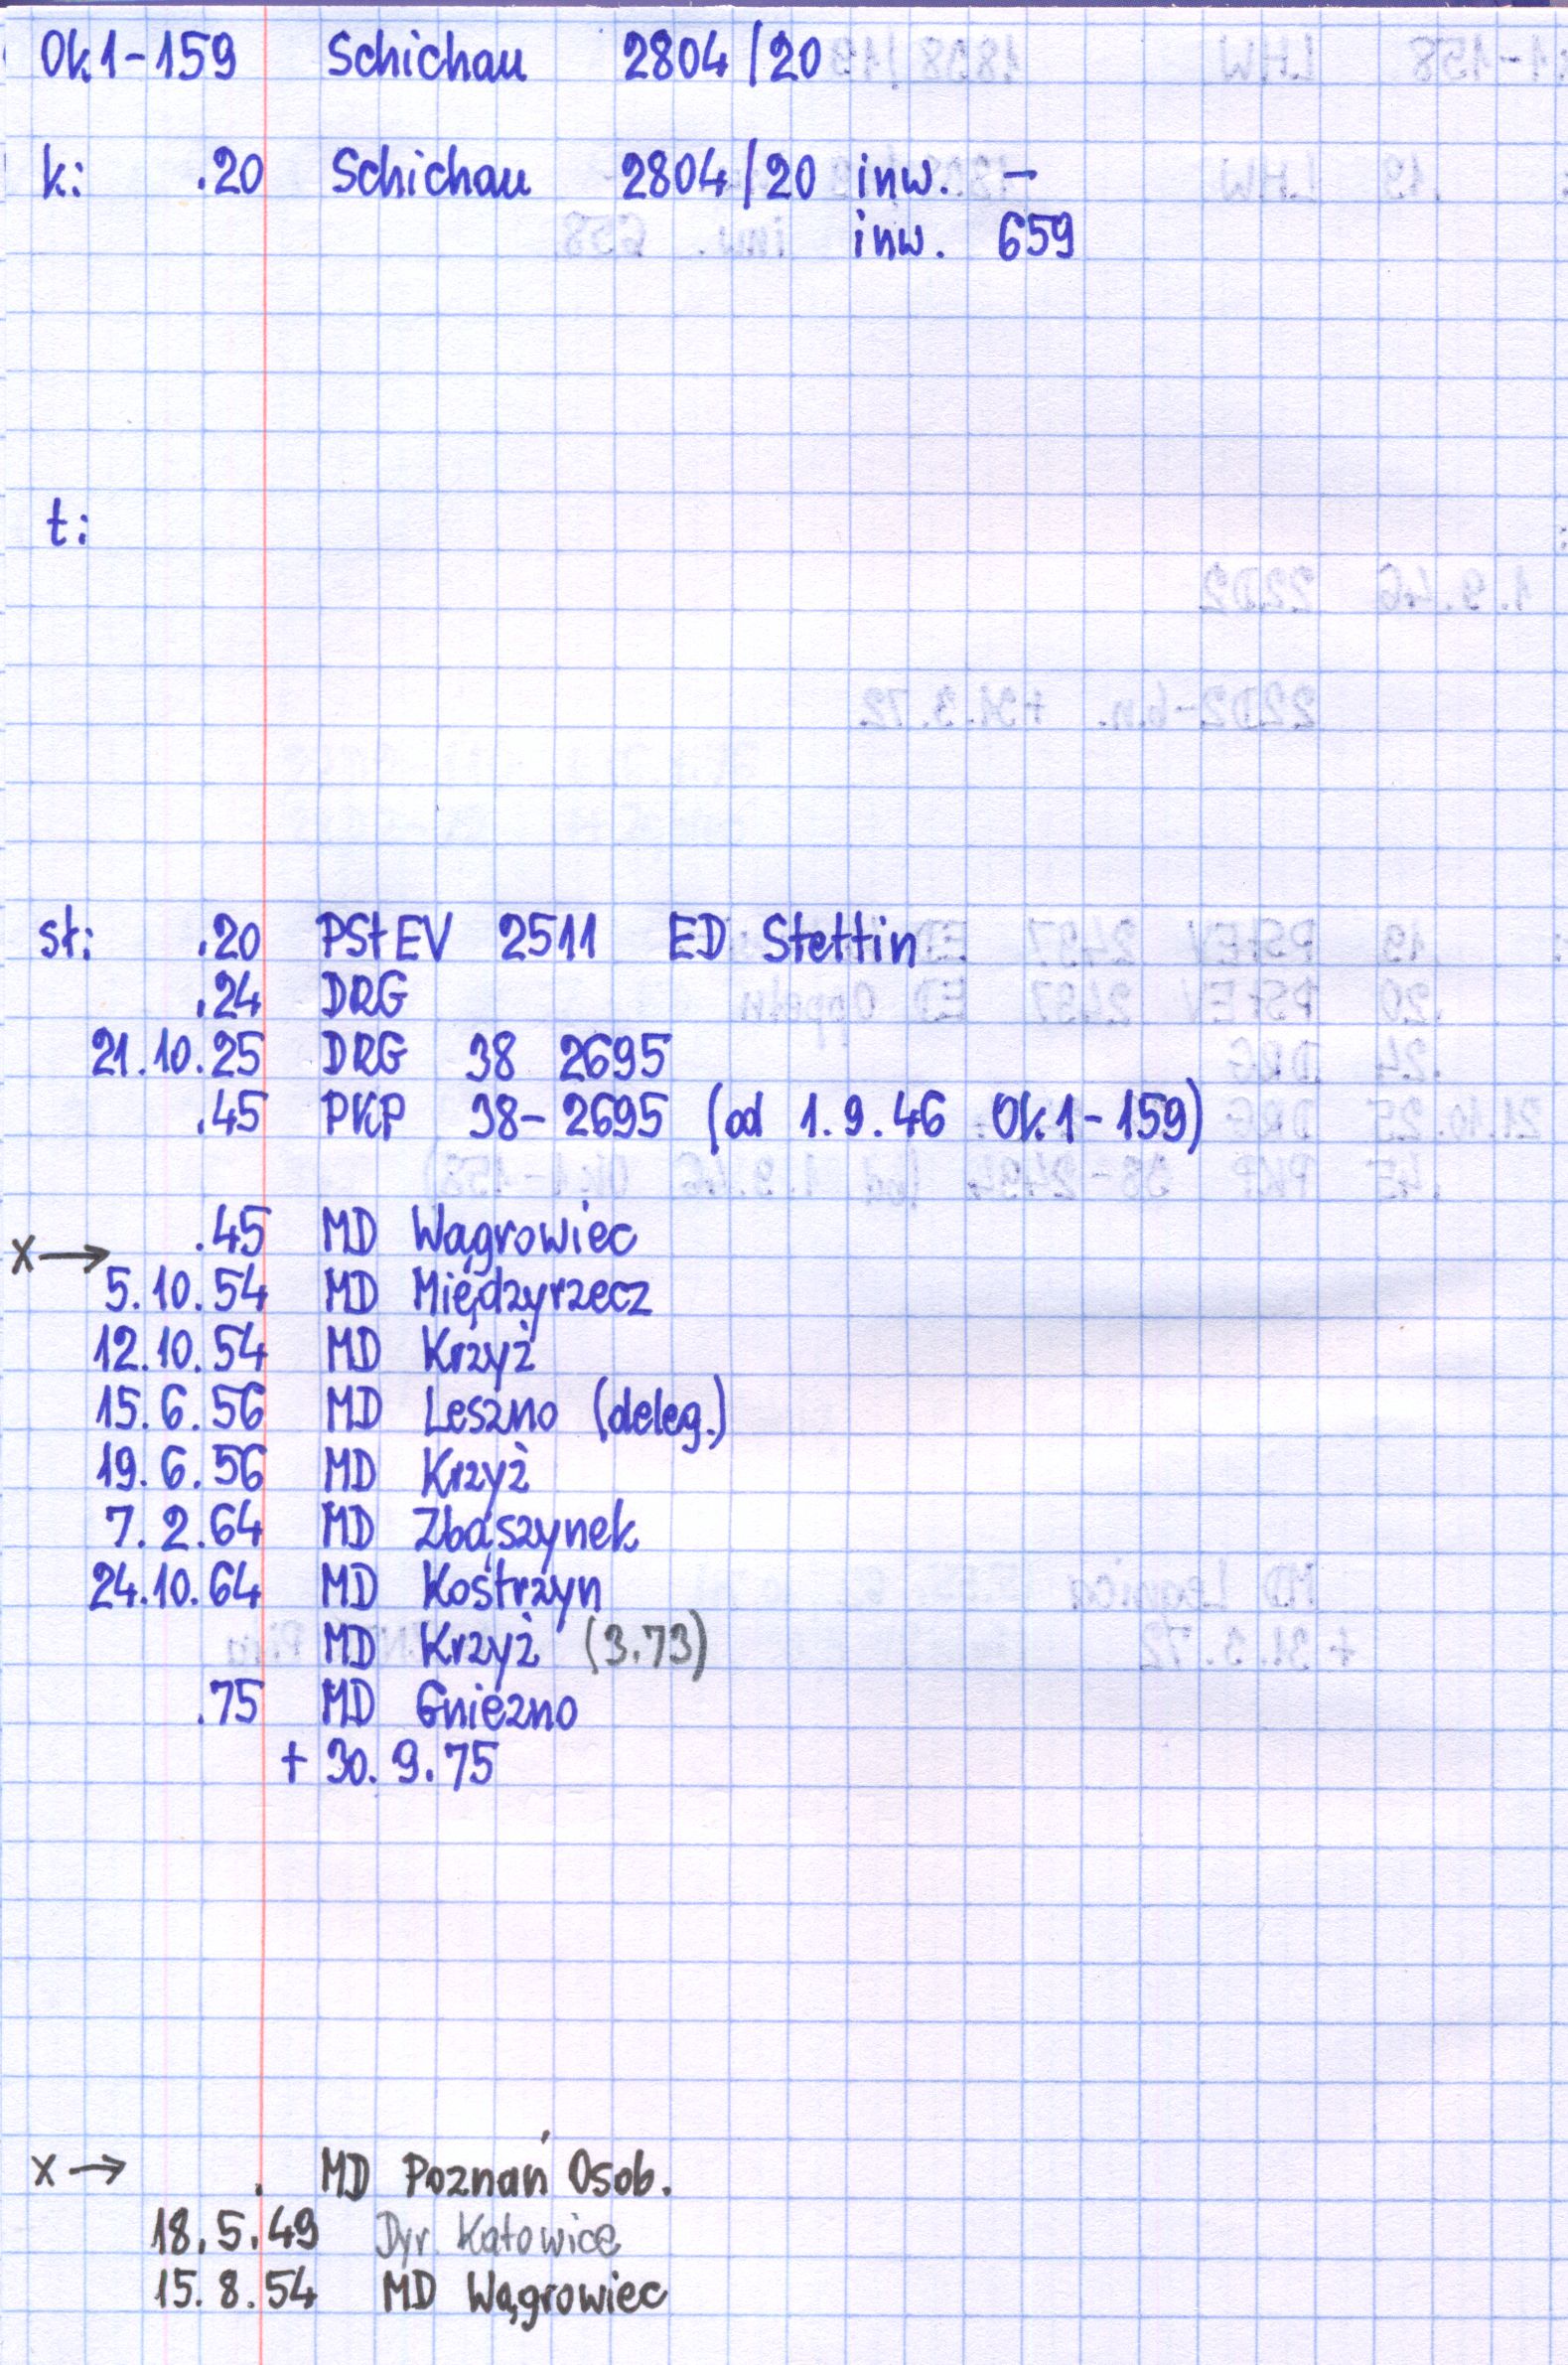 Ok1-159 Schichau 2804/20
k: .20 Schichau 2804/20 inw. -
inw. 659
t:
st: .20 PStEV 2511 ED Stettin
.24 DRG
21.10.25 DRG 38 2695
.45 PKP 38-2695 (od 1.9.46 Ok1-159)
.45 MD Wągrowiec
x→
5.10.54 MD Międzyrzecz
12.10.54 MD Krzyż
15.6.56 MD Leszno (deleg.)
19.6.56 MD Krzyż
7.2.64 MD Zbąszynek
24.10.64 MD Kostrzyn
MD Krzyż (3.73)
.75 MD Gniezno
+ 30.9.75
x→ . MD Poznań Osob.
18.5.49 Dyr. Katowice
15.8.54 MD Wągrowiec